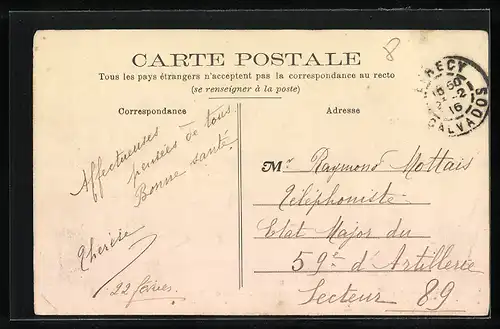 8
CARTE POSTALE
Tous les pays étrangers n'acceptent pas la correspondance au recto
(se renseigner à la poste)
EVRECY
18 50
2
16
CALVADOS
Correspondance
Adresse
Affectueuses
pensées de tous.
Bonne santé.
Thérèse
22 février.
Mr Raymond Mottais
Téléphoniste
Etat Major du
59e d'Artillerie
Secteur 89